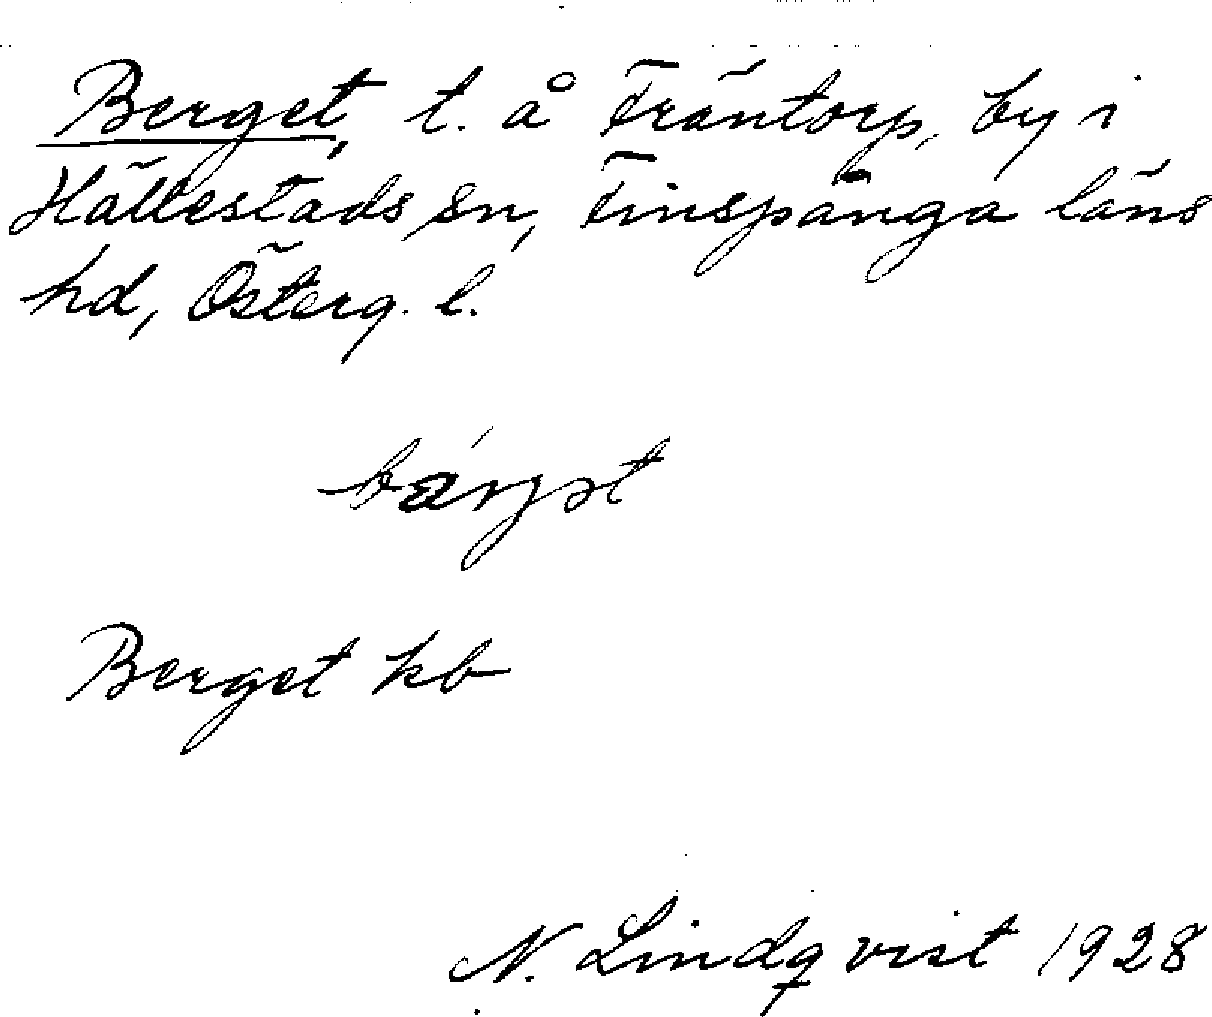 Berget, t. å Fräntorp, by i
Hällestads sn, Finspånga läns
hd, Österg. l.
Berget kb
N. Lindqvist 1928